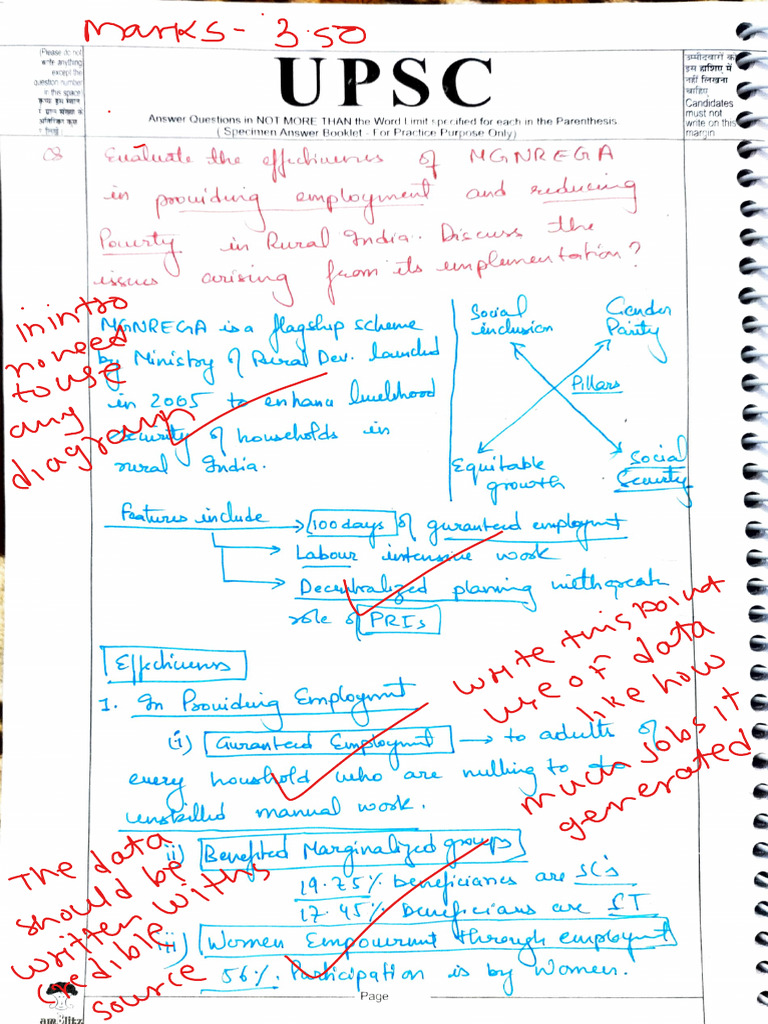 Marks - 3.50
(Please do not
write anything
except the
question number
in this space
UPSC
Answer Questions in NOT MORE THAN the Word Limit specified for each in the Parenthesis.
( Specimen Answer Booklet - For Practice Purpose Only)
उम्मीदवारों को
इस हाशिए में
नहीं लिखना
चाहिए
Candidates
must not
write on this
margin
Q8 Evaluate the effectiveness of MGNREGA
in providing employment and reducing
Poverty in Rural India. Discuss the
issues arising from its implementation?
in intro
no need
to use
any
diagram
MGNREGA is a flagship scheme
by Ministry of Rural Dev. launched
in 2005 to enhance livelihood
security of households in
rural India.
Social
inclusion
Gender
Parity
Pillars
Equitable
growth
Social
Security
Features include → 100 days of guranteed employmt
→ Labour intensive work
→ Decentralized planning with great
role of PRIs
Effectiveness
1. In Providing Employmt
(i) Guranteed Employmt → to adults of
every houshold who are willing to do
unskilled manual work.
write this point
use of data
like how
much jobs it
generated
ii) Benefited Marginalized groups
19.75% beneficiaries are SC's
17.45% Beneficiaries are ST
iii) Women Empowerment through employmt
56% Participation is by Women.
The data
should be
written with
credible
source
Page